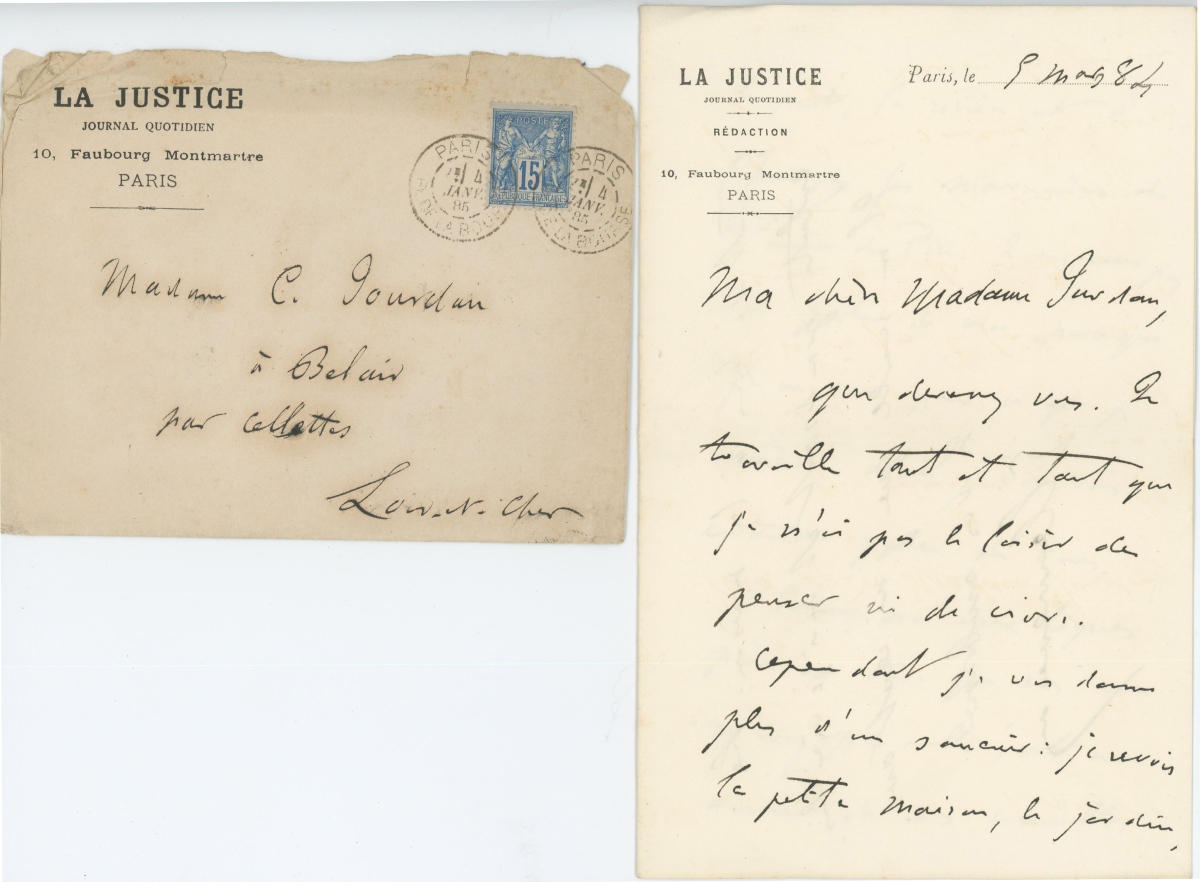 LA JUSTICE
JOURNAL QUOTIDIEN
10, Faubourg Montmartre
PARIS
POSTE
15
RÉPUBLIQUE FRANÇAISE
PARIS
4
JANV.
85
R. DE LA BOURSE
PARIS
4
JANV.
85
R. DE LA BOURSE
Madame C. Jourdain
à Belair
par Cellettes
Loir-&-Cher
LA JUSTICE
JOURNAL QUOTIDIEN
RÉDACTION
10, Faubourg Montmartre
PARIS
Paris, le mars 84
Ma chère Madame Jourdain,
que devenez vous. Je
travaille tant et tant que
je n'ai pas le loisir de
penser ni de vivre.
Cependant je vous donne
plus d'un souvenir : je revois
la petite maison, le jardin,